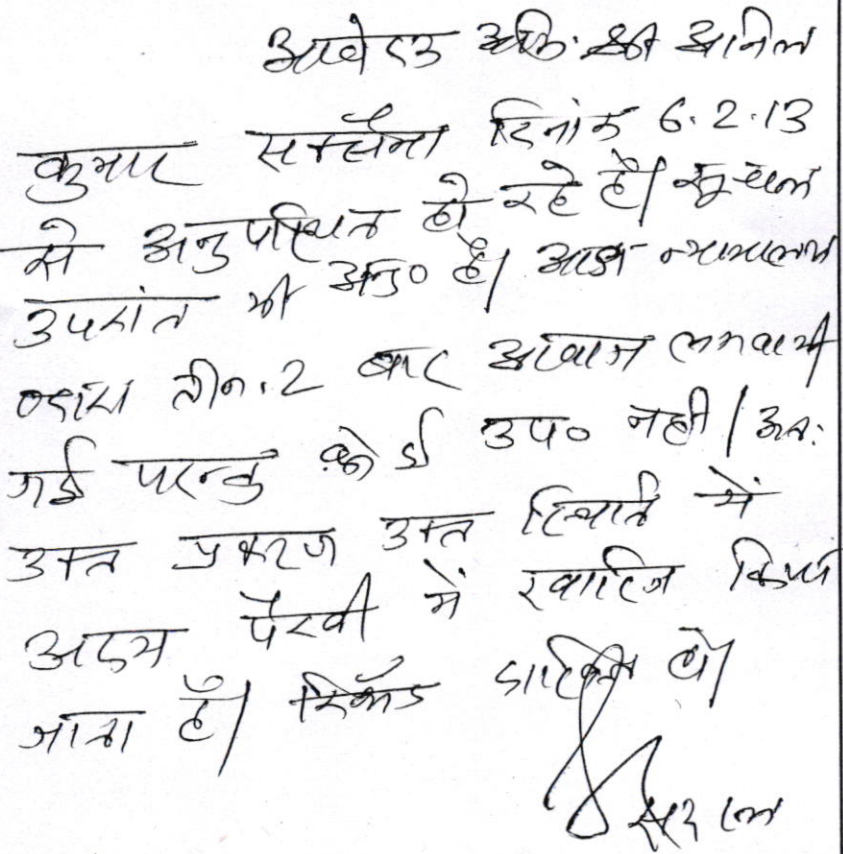 आवेदक अधि. श्री अनिल
कुमार सक्सैना दिनांक 6.2.13
से अनुपस्थित हो रहे है। सूचना
उपरांत भी अनु० है। आज न्यायालय
द्वारा तीन.2 बार आवाज लगवायी
गई परन्तु कोई उप० नही। अतः
उक्त प्रकरण उक्त स्थिति में
अदम पैरवी में खारिज किया
जाता है। रिकॉर्ड दाखिल हो।